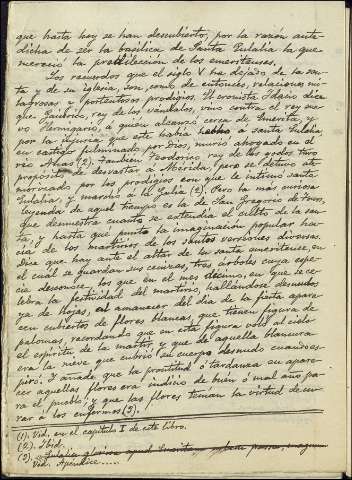 que hasta hoy se han descubierto, por la razón ante-
dicha de ser la basílica de Santa Eulalia la que
mereció la predilección de los emeritenses.
Los recuerdos que el siglo V ha dejado de la san-
ta y de su iglesia, son, como de entonces, relaciones mi-
lagrosas y portentosos prodigios. El cronista Idacio dice
que Gaiserico, rey de los vándalos, vino contra el rey sue-
vo Hermgario, a quien alcanzó cerca de Emerita, y
por la injuria que este había hecho a Santa Eulalia,
en castigo fulminado por Dios, murió ahogado en el
río Anas (2). También Teodorico rey de los godos tuvo
propósito de devastar a Mérida, pero se detuvo ate-
morizado por los prodigios con que le intimó santa
Eulalia, y marchó a la Galia (2). Pero la más curiosa
leyenda de aquel tiempo es la de San Gregorio de Tours,
que demuestra cuanto se extendía el culto de la san-
ta, y hasta qué punto la imaginación popular ha-
cía de los martirios de los santos versiones diversas.
Dice que hay ante el altar de la santa emeritense, en
el cual se guardan sus cenizas, tres árboles cuya espe-
cie desconoce, los que en el mes décimo, en que se ce-
lebra la festividad del martirio, hallándose desnudos
ya de hojas, al amanecer del día de la fiesta apare-
cen cubiertos de flores blancas, que tienen figura de
palomas, recordando que en esta figura voló al cielo
el espíritu de la martir, y que de aquella blancura
era la nieve que cubrió su cuerpo desnudo cuando es-
peró. Y añade que la prontitud ó tardanza en apare-
cer aquellas flores era indicio de buen ó mal año pa-
ra el pueblo, y que las flores tenían la virtud de cu-
rar a los enfermos (3).
(1). Vid. en el capítulo I de este libro.
(2). Ibid.
(3). Eulalia gloriosa apud Emeritam
Vid. Apéndice .....